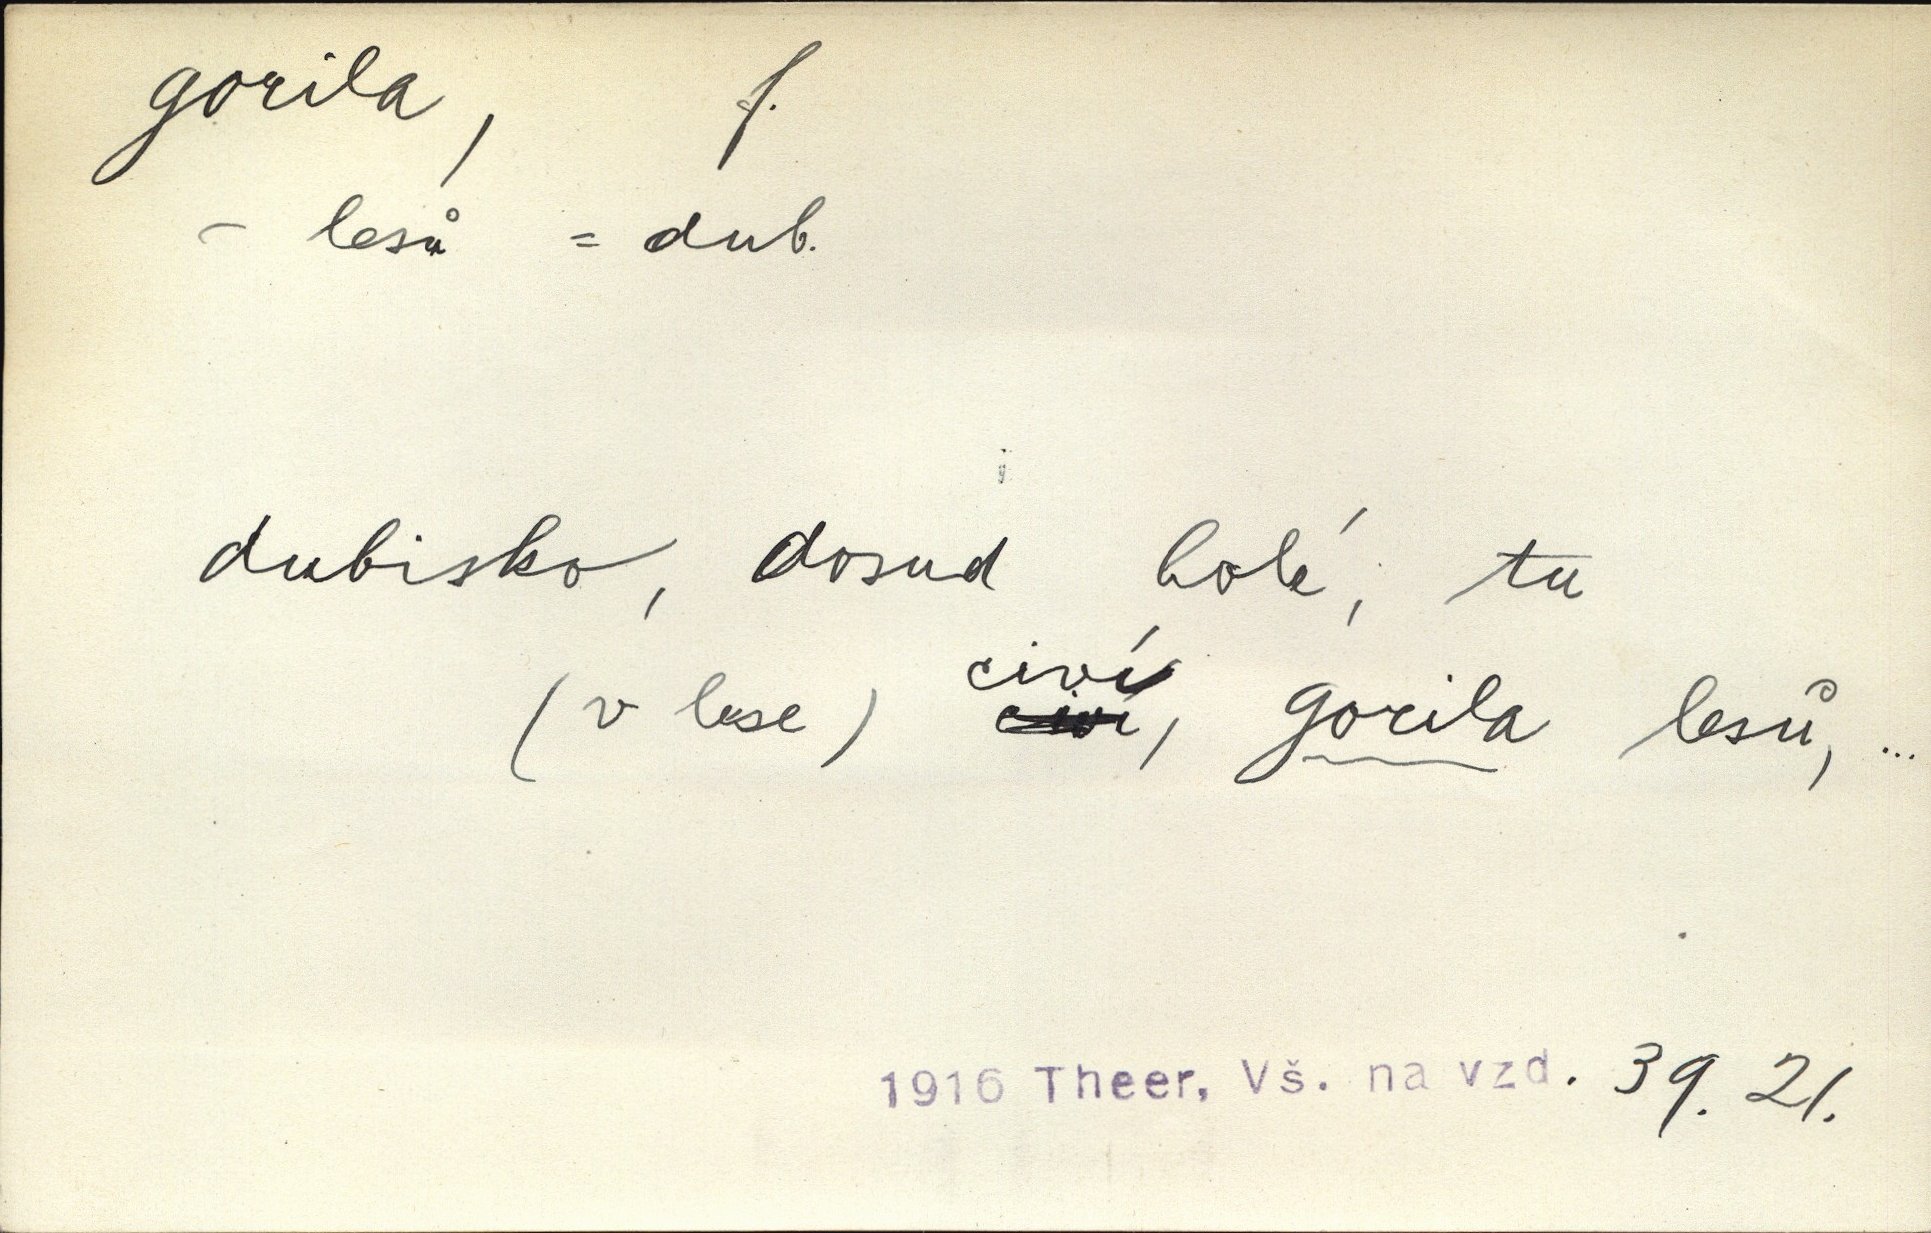 gorila, f.
- lesů = dub.
dubisko, dosud holé, tu
civí
(v lese) civí, gorila lesů, ...
1916 Theer, Vš. na vzd. 39. 21.